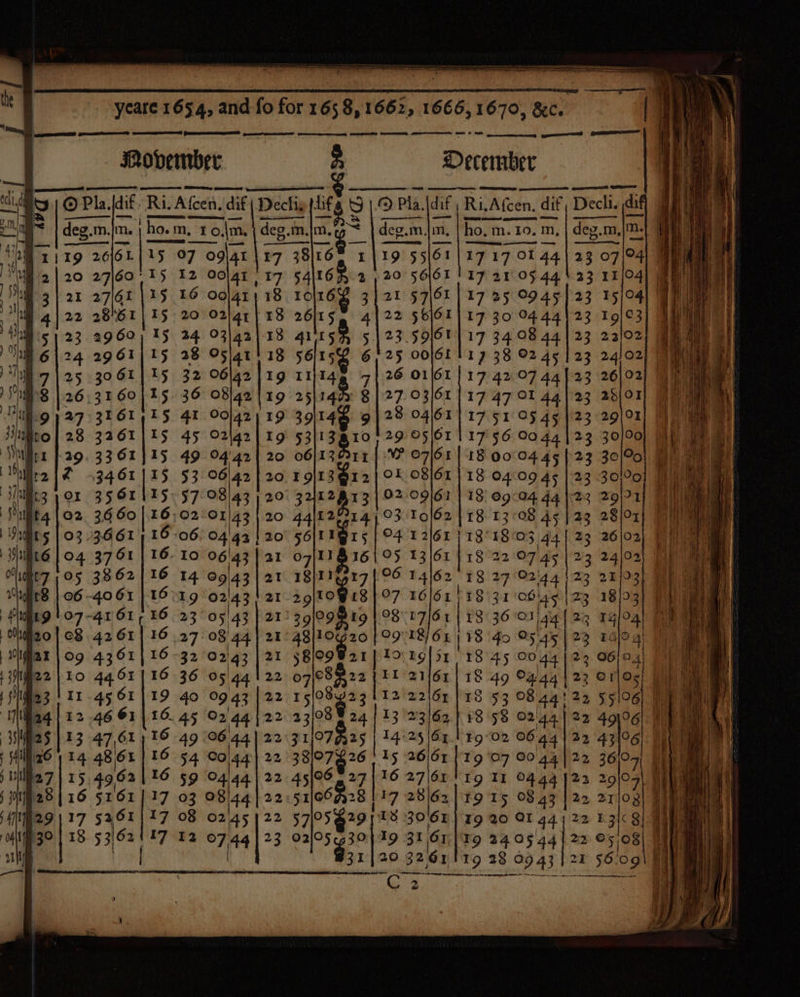 the
yeare 1654, and ſo for 1658, 1662, 1666, 1670, &c.
November December
☉ Pla. dif Ri. Aſcen. dif Declin dif ☉ Pla. dif Ri. Aſcen. dif Decli. dif
deg. m. m. ho. m. 10. m. deg. m. m. deg. m. m. ho. m. 10. m. deg. m. m.
1 19 26 61 15 07 09 41 17 38 16 1 19 55 61 17 17 01 44 23 07 04
2 20 27 60 15 12 00 41 17 54 16 2 20 56 61 17 21 05 44 23 11 04
3 21 27 61 15 16 00 41 18 10 16 3 21 57 61 17 25 09 45 23 15 04
4 22 28 61 15 20 02 41 18 26 15 4 22 58 61 17 30 04 44 23 19 03
5 23 29 60 15 24 03 42 18 41 15 5 23 59 61 17 34 08 44 23 22 02
6 24 29 61 15 28 05 41 18 56 15 6 25 00 61 17 38 02 45 23 24 02
7 25 30 61 15 32 06 42 19 11 14 7 26 01 61 17 42 07 44 23 26 02
8 26 31 60 15 36 08 42 19 25 14 8 27 03 61 17 47 01 44 23 28 01
9 27 31 61 15 41 00 42 19 39 14 9 28 04 61 17 51 05 45 23 29 01
10 28 32 61 15 45 02 42 19 53 13 10 29 05 61 17 56 00 44 23 30 00
11 29 33 61 15 49 04 42 20 06 13 11 ♑ 07 61 18 00 04 45 23 30 00
12 ♐ 34 61 15 53 06 42 20 19 13 12 01 08 61 18 04 09 45 23 30 00
13 01 35 61 15 57 08 43 20 32 12 13 02 09 61 18 09 04 44 23 29 01
14 02 36 60 16 02 01 43 20 44 12 14 03 10 62 18 13 08 45 23 28 01
15 03 36 61 16 06 04 42 20 56 11 15 04 12 61 18 18 03 44 23 26 02
16 04 37 61 16 10 06 43 21 07 11 16 05 13 61 18 22 07 45 23 24 02
17 05 38 62 16 14 09 43 21 18 11 17 06 14 62 18 27 02 44 23 21 03
18 06 40 61 16 19 02 43 21 29 10 18 07 16 61 18 31 06 45 23 18 03
19 07 41 61 16 23 05 43 21 39 09 19 08 17 61 18 36 01 44 23 14 04
20 08 42 61 16 27 08 44 21 48 10 20 09 18 61 18 40 05 45 23 10 04
21 09 43 61 16 32 02 43 21 58 09 21 10 19 51 18 45 00 44 23 06 04
22 10 44 61 16 36 05 44 22 07 08 22 11 21 61 18 49 04 44 23 01 05
23 11 45 61 19 40 09 43 22 15 08 23 12 22 61 18 53 08 44 22 55 06
24 12 46 61 16 45 02 44 22 23 08 24 13 23 62 18 58 02 44 22 49 06
25 13 47 61 16 49 06 44 22 31 07 25 14 25 61 19 02 06 44 22 43 06
26 14 48 61 16 54 00 44 22 38 07 26 15 26 61 19 07 00 44 22 36 07
27 15 49 62 16 59 04 44 22 45 06 27 16 27 61 19 11 04 44 22 29 07
28 16 51 61 17 03 08 44 22 51 06 28 17 28 62 19 15 08 43 22 21 08
29 17 52 61 17 08 02 45 22 57 05 29 18 30 61 19 20 01 44 22 13 08
30 18 53 62 17 12 07 44 23 02 05 30 19 31 61 19 24 05 44 22 05 08
31 20 32 61 19 28 09 43 21 56 09
C 2